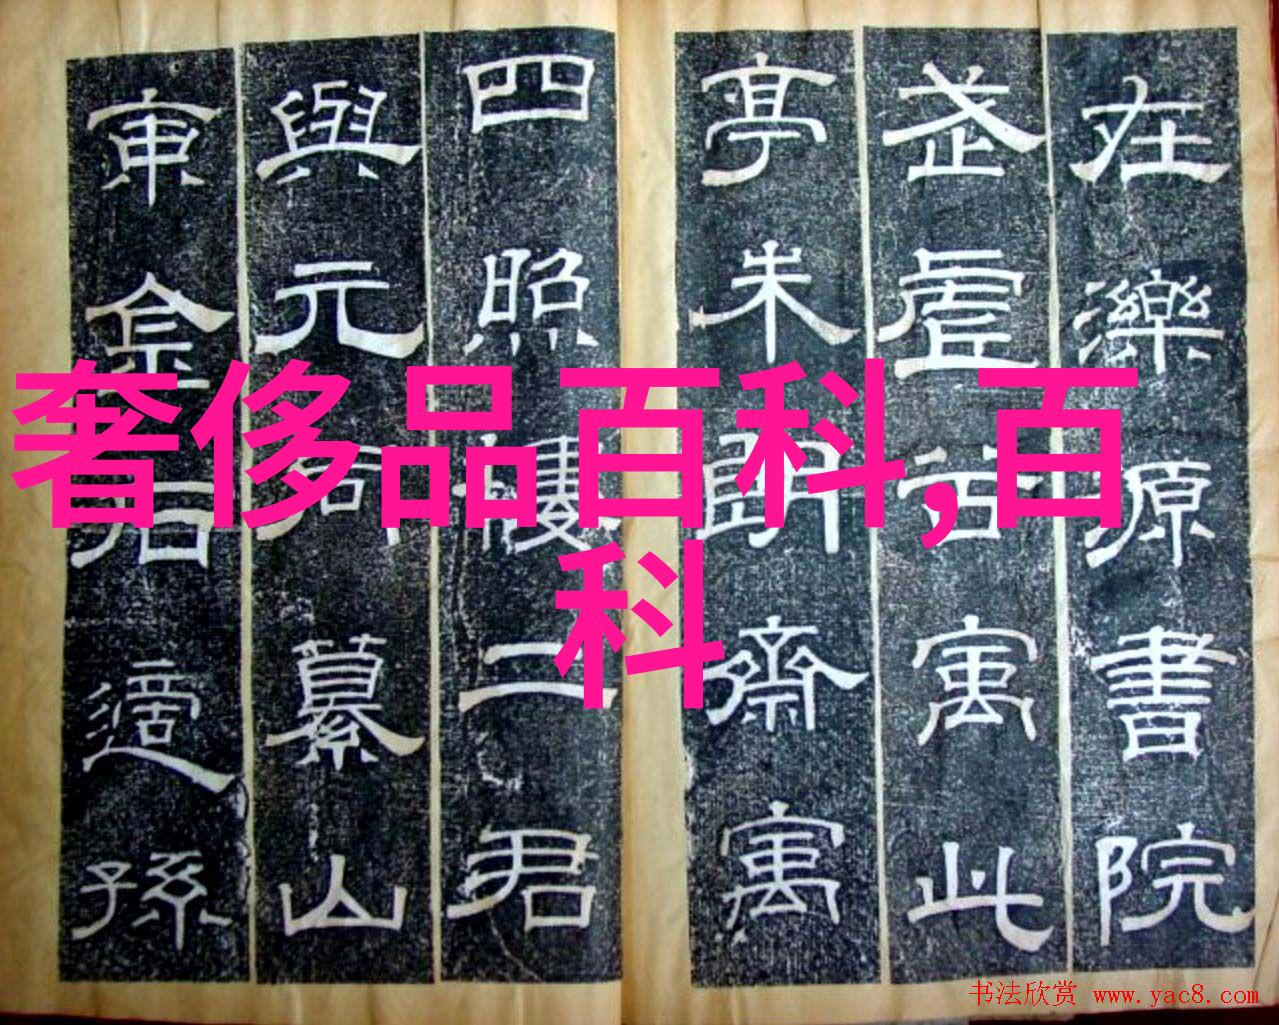 在濼源書院
武虛谷寓此
亭朱朗齋寓
四照樓二君
與元同纂山
東金石適孫
奢侈品百科,百
科
书法欣赏 www.yac8.com